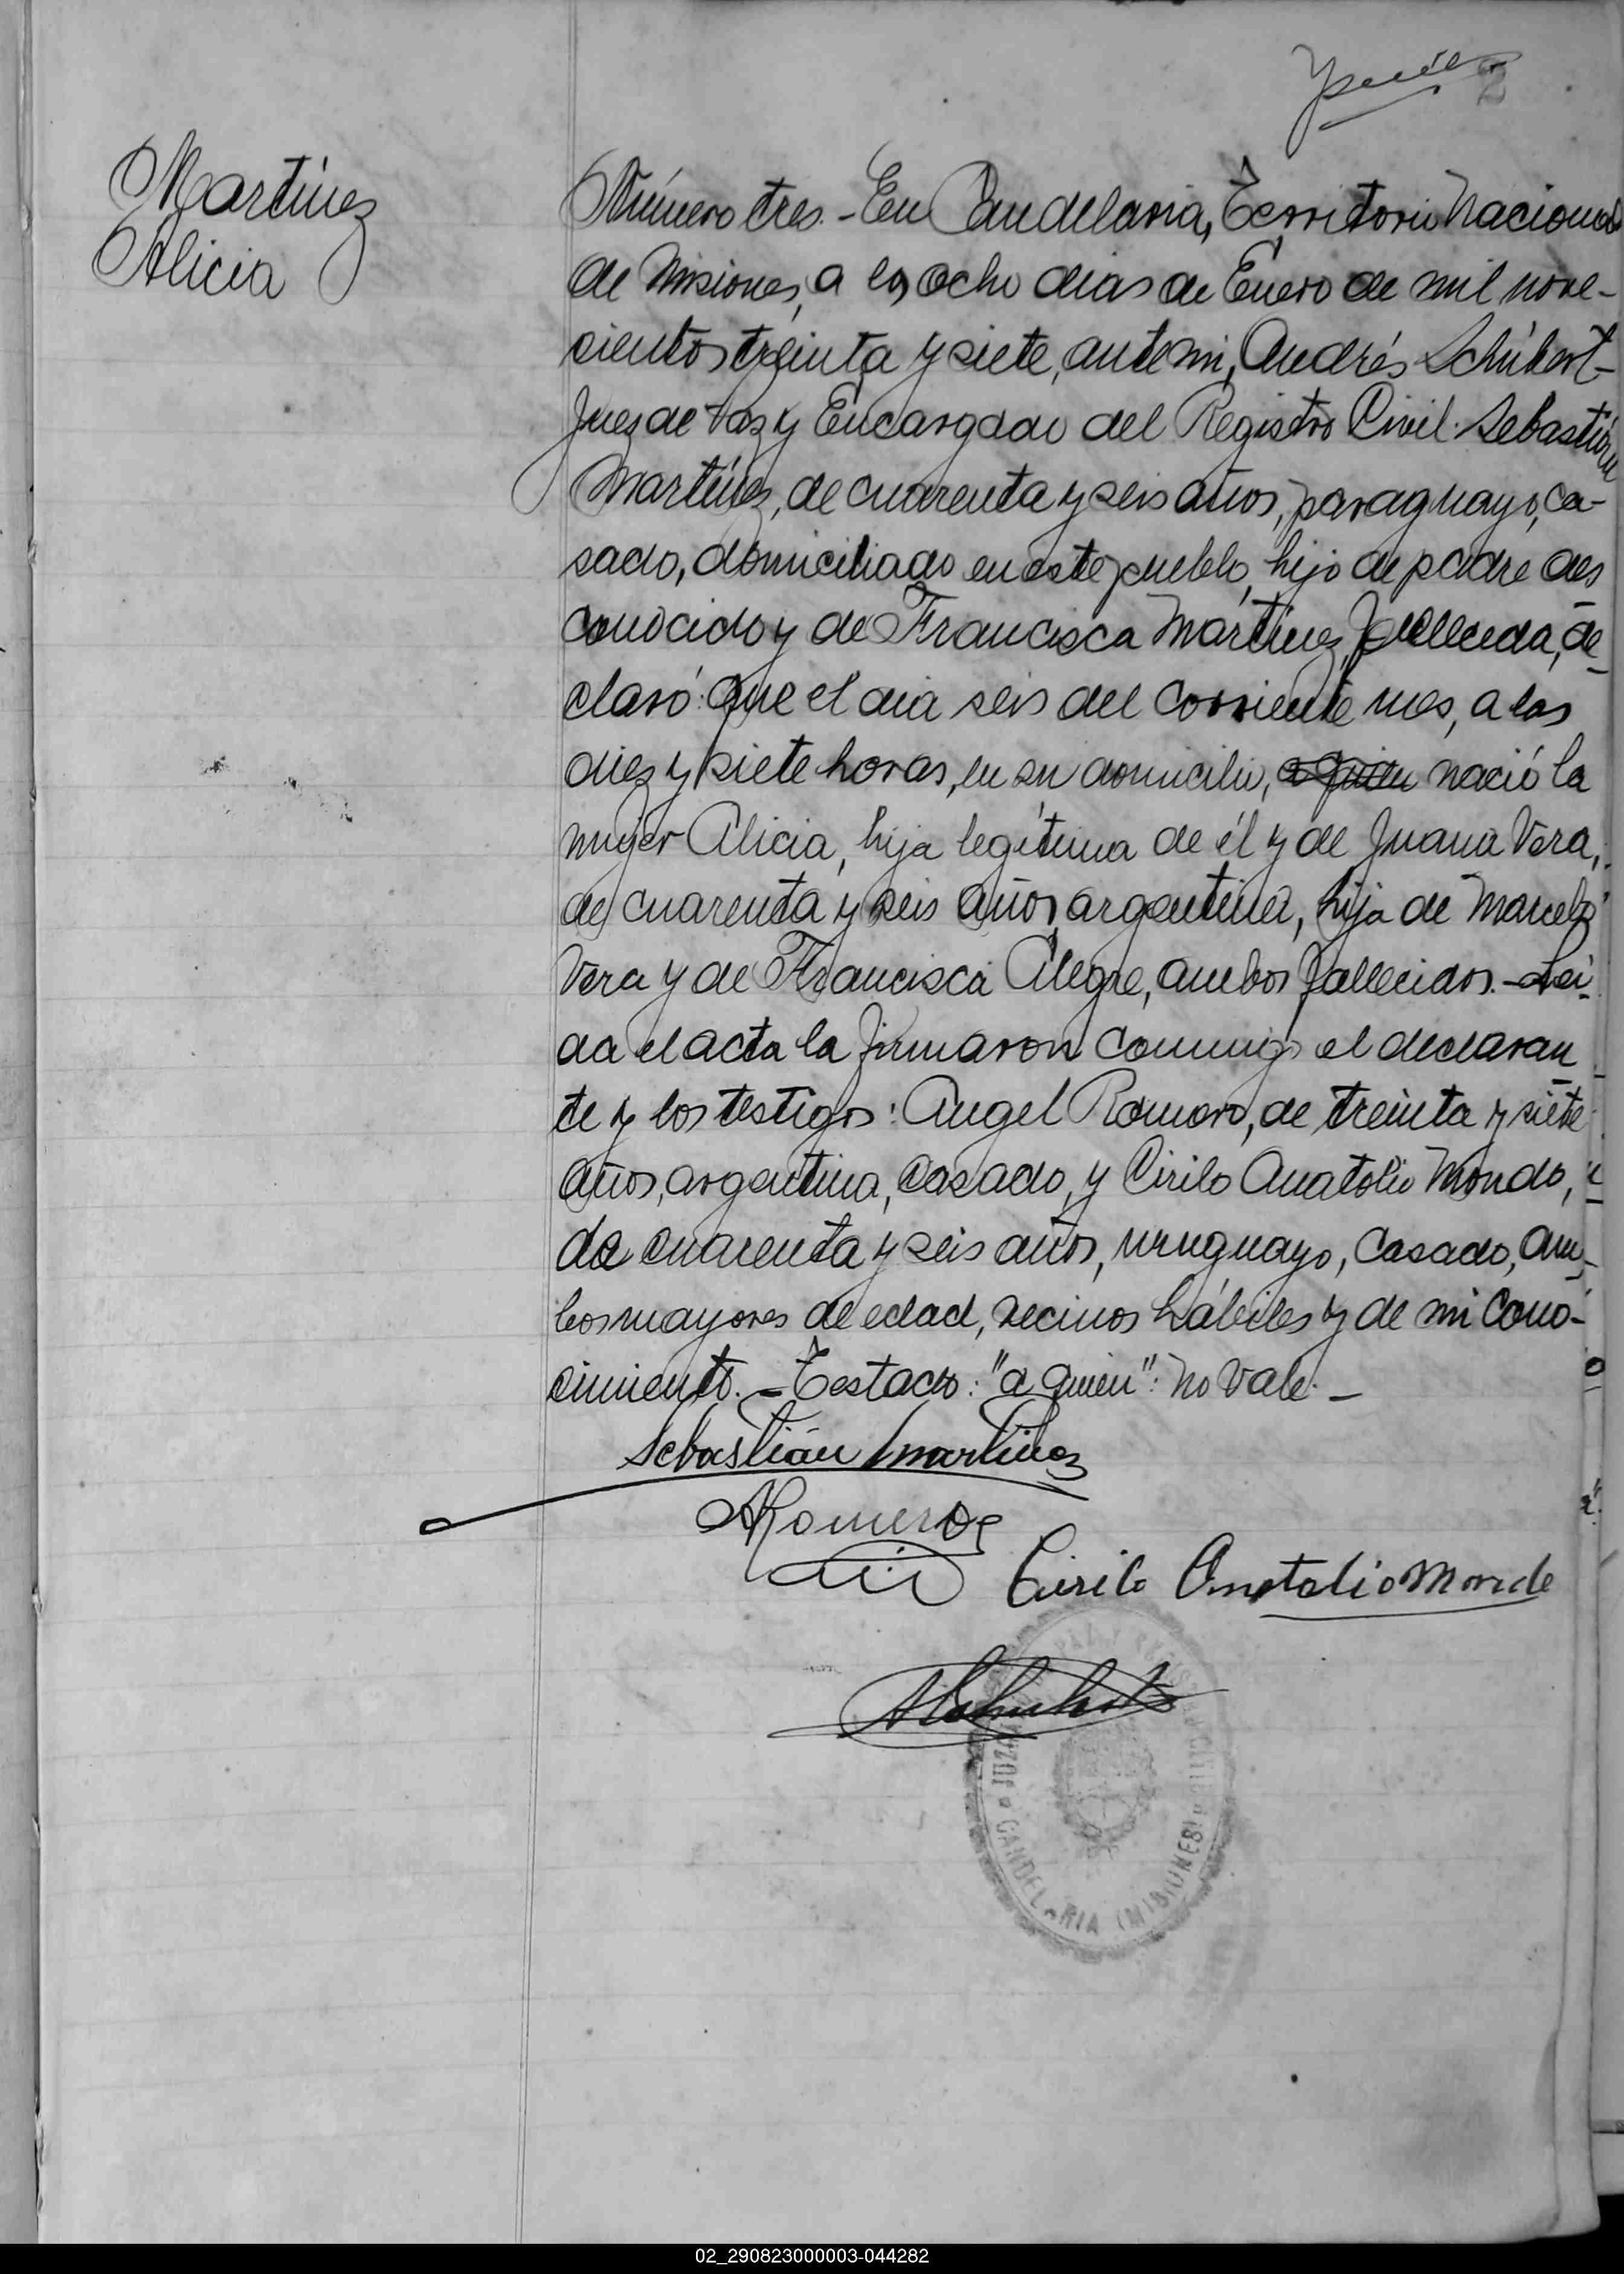 2
Martínez
Alicia
Número tres.-En Candelaria, Territorio Nacional
de Misiones, a los ocho dias de Enero de mil nove-
cientos treinta y siete, ante mi, Andrés Schubert-
Juez de Paz y Encargado del Registro Civil: Sebastián
Martínez, de cuarenta y seis años, paraguayo, ca-
sado, domiciliado en este pueblo, hijo de padre des
conocido y de Francisca Martínez, fallecida, de-
claró: que el dia seis del corriente mes, a las
diez y siete horas, en su domicilio, a quien nació la
mujer Alicia, hija legítima de él y de Juana Vera,
de cuarenta y seis años, argentina, hija de Marcelo
Vera y de Francisca Alegre, ambos fallecidos.-Lei-
da el acta la firmaron conmigo el declaran
te y los testigos: Angel Romero, de treinta y siete
años, argentino, casado, y Cirilo Anatolio Mondo,
de cuarenta y seis años, uruguayo, casado, am-
bos mayores de edad, vecinos hábiles y de mi cono-
cimiento.-Testado: "a quien": no vale.-
Sebastián Martinez
ARomero
Cirilo Anatolio Monde
ASchubert
JUZ PAZ Y REGIS CIVIL
CANDELARIA (MISIONES)
02_290823000003-044282